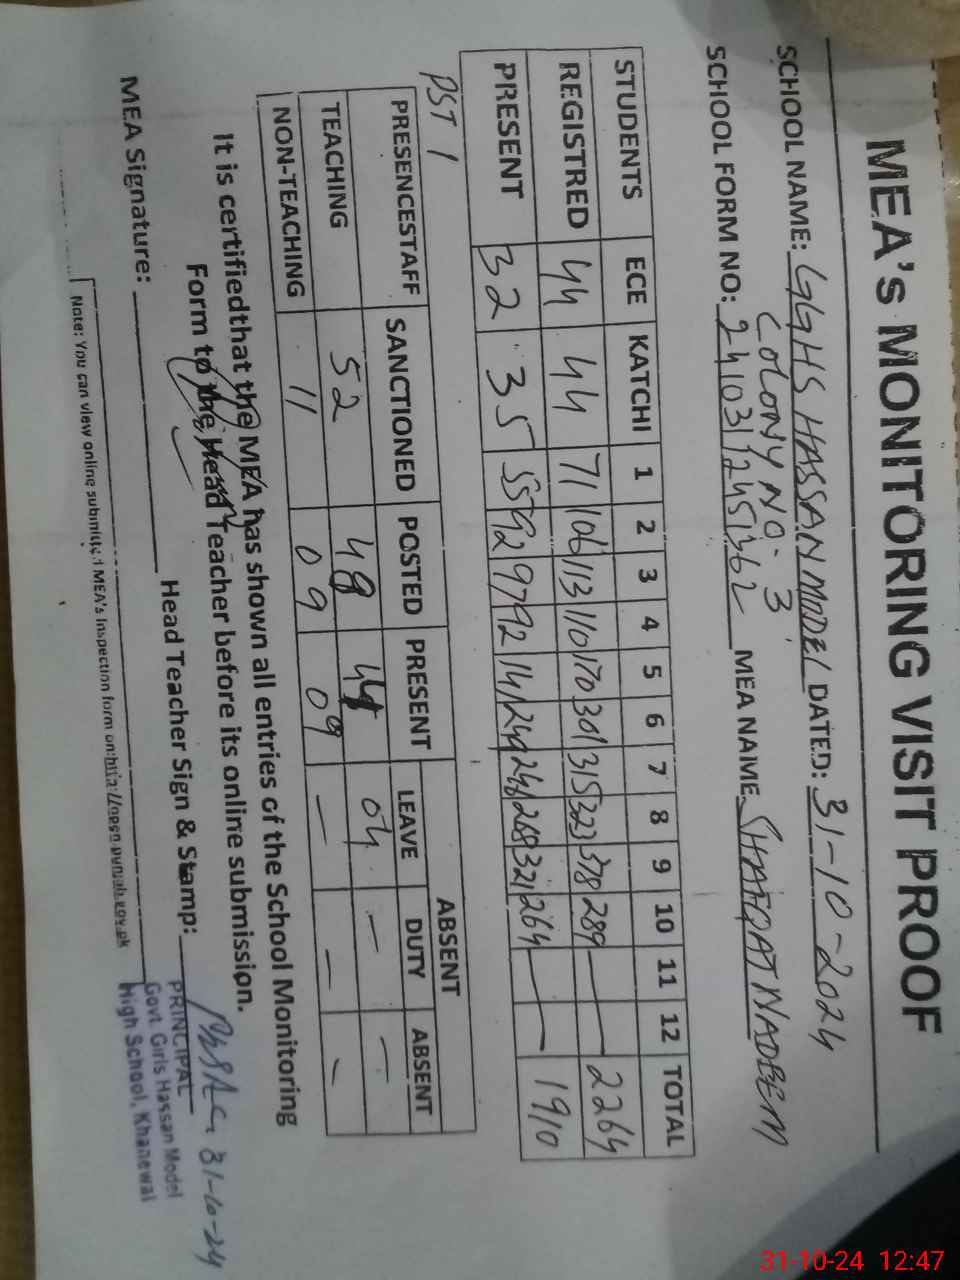 MEA's MONITORING VISIT PROOF
SCHOOL NAME: GGHS HASSAN MODEL DATED: 31-10-2024
COLONY NO. 3
SCHOOL FORM NO: 24103124511362 MEA NAME SHAFQAT NADEEM
STUDENTS ECE KATCHI 1 2 3 4 5 6 7 8 9 10 11 12 TOTAL
REGISTRED 44 44 71 106 113 110 170 301 315 323 378 289 — — 2264
PRESENT 32 35 55 92 97 92 141 249 248 268 321 264 — — 1910
PST 1
PRESENCESTAFF SANCTIONED POSTED PRESENT ABSENT
LEAVE DUTY ABSENT
TEACHING 52 48 44 04 — —
NON-TEACHING 11 09 09 — — —
It is certifiedthat the MEA has shown all entries of the School Monitoring
Form to the Head Teacher before its online submission.
MEA Signature: Head Teacher Sign & Stamp:
31-10-24
PRINCIPAL
Govt. Girls Hassan Model
High School, Khanewal
Note: You can view online submitted MEA's Inspection form on:
31-10-24 12:47